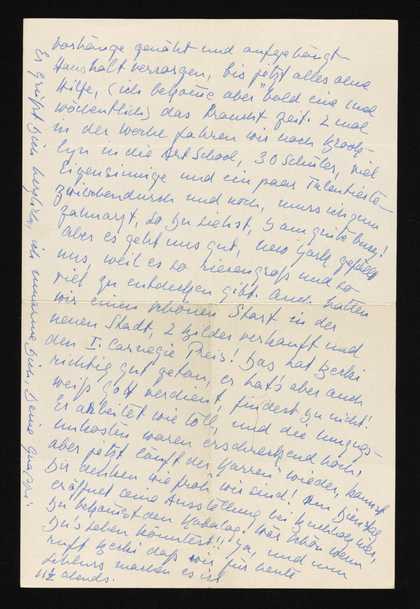 Vorhänge genäht und aufgehängt
Haushalt versorgen, bis jetzt alles ohne
Hilfe, (ich bekomme aber bald eine mal
wöchentlich) das braucht Zeit. 2 mal
in der Woche fahren wir nach Brook-
lyn in die Art School, 30 Schüler, viel
Eigensinnige und ein paar Talentierte –
zwischendurch und noch, muss ich zum
Zahnarzt, so Du siehst, I am quite busy!
Aber es geht uns gut, new york gefällt
uns, weil es so riesengroß und so
viel zu entdecken gibt. Auch hatten
wir einen schönen Start in der
neuen Stadt, 2 Bilder verkauft und
den I. Carnegie Preis! Das hat
richtig gut getan, er hat's aber auch
weiß Gott verdient, findest Du nicht!
Er arbeitet wie toll, und die Umzugs-
unkosten waren erschreckend hoch,
aber jetzt läuft der Karren wieder, kannst
Dir denken wie froh wir sind! Am Dienstag
eröffnet seine Ausstellung bei
Du bekommst den Katalog! Wär schön wenn
Du's sehen könntest!! Ja, und nun
ruft daß wir für heute
Schluss machen es ist
11½ abends.
Es grüßt Dich herzlich, ich umarme Dich, Deine